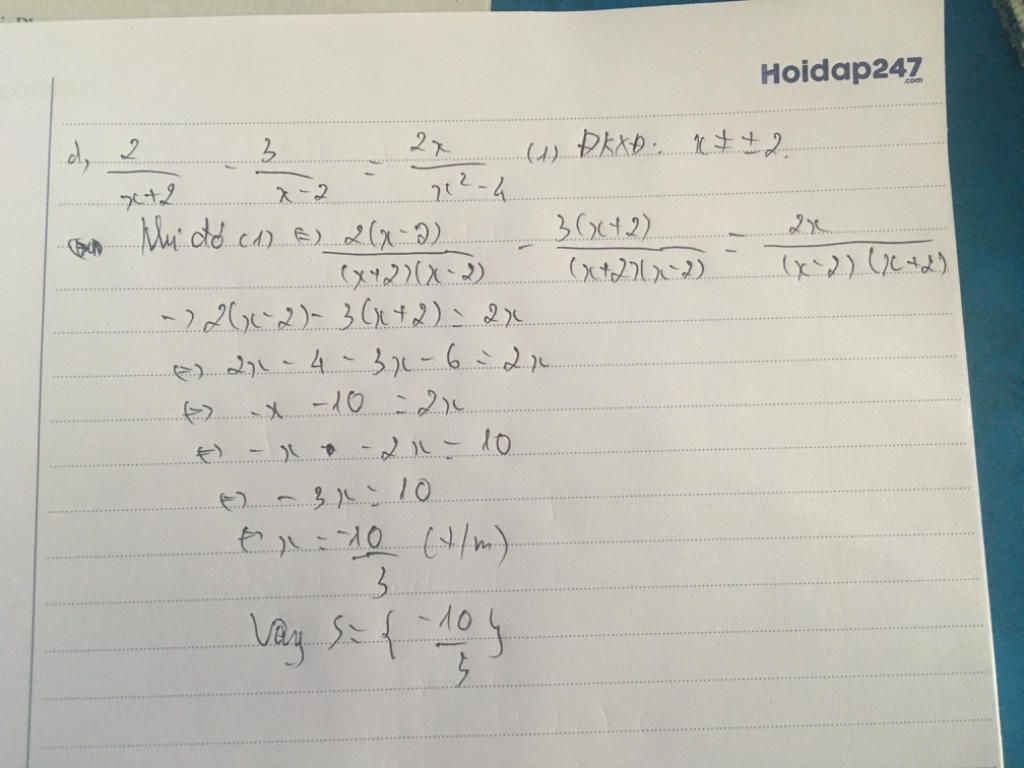 Hoidap247
.com
d, 2/(x+2) - 3/(x-2) = 2x/(x²-4) (1) ĐKXĐ: x ≠ ±2.
Khi đó (1) ⇔ 2(x-2)/((x+2)(x-2)) - 3(x+2)/((x+2)(x-2)) = 2x/((x-2)(x+2))
→ 2(x-2) - 3(x+2) = 2x
⇔ 2x - 4 - 3x - 6 = 2x
⇔ -x - 10 = 2x
⇔ -x - 2x = 10
⇔ -3x = 10
⇔ x = -10/3 (t/m)
Vậy S = { -10/3 }